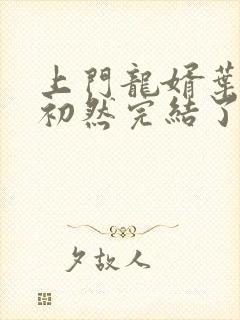 上門龍婿葉
初然完結了
夕故人